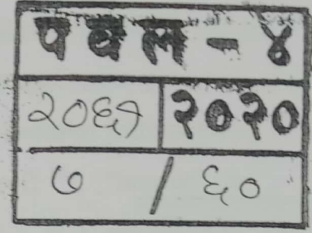 पवल - ४
२०६१ २०२०
७ / ६०